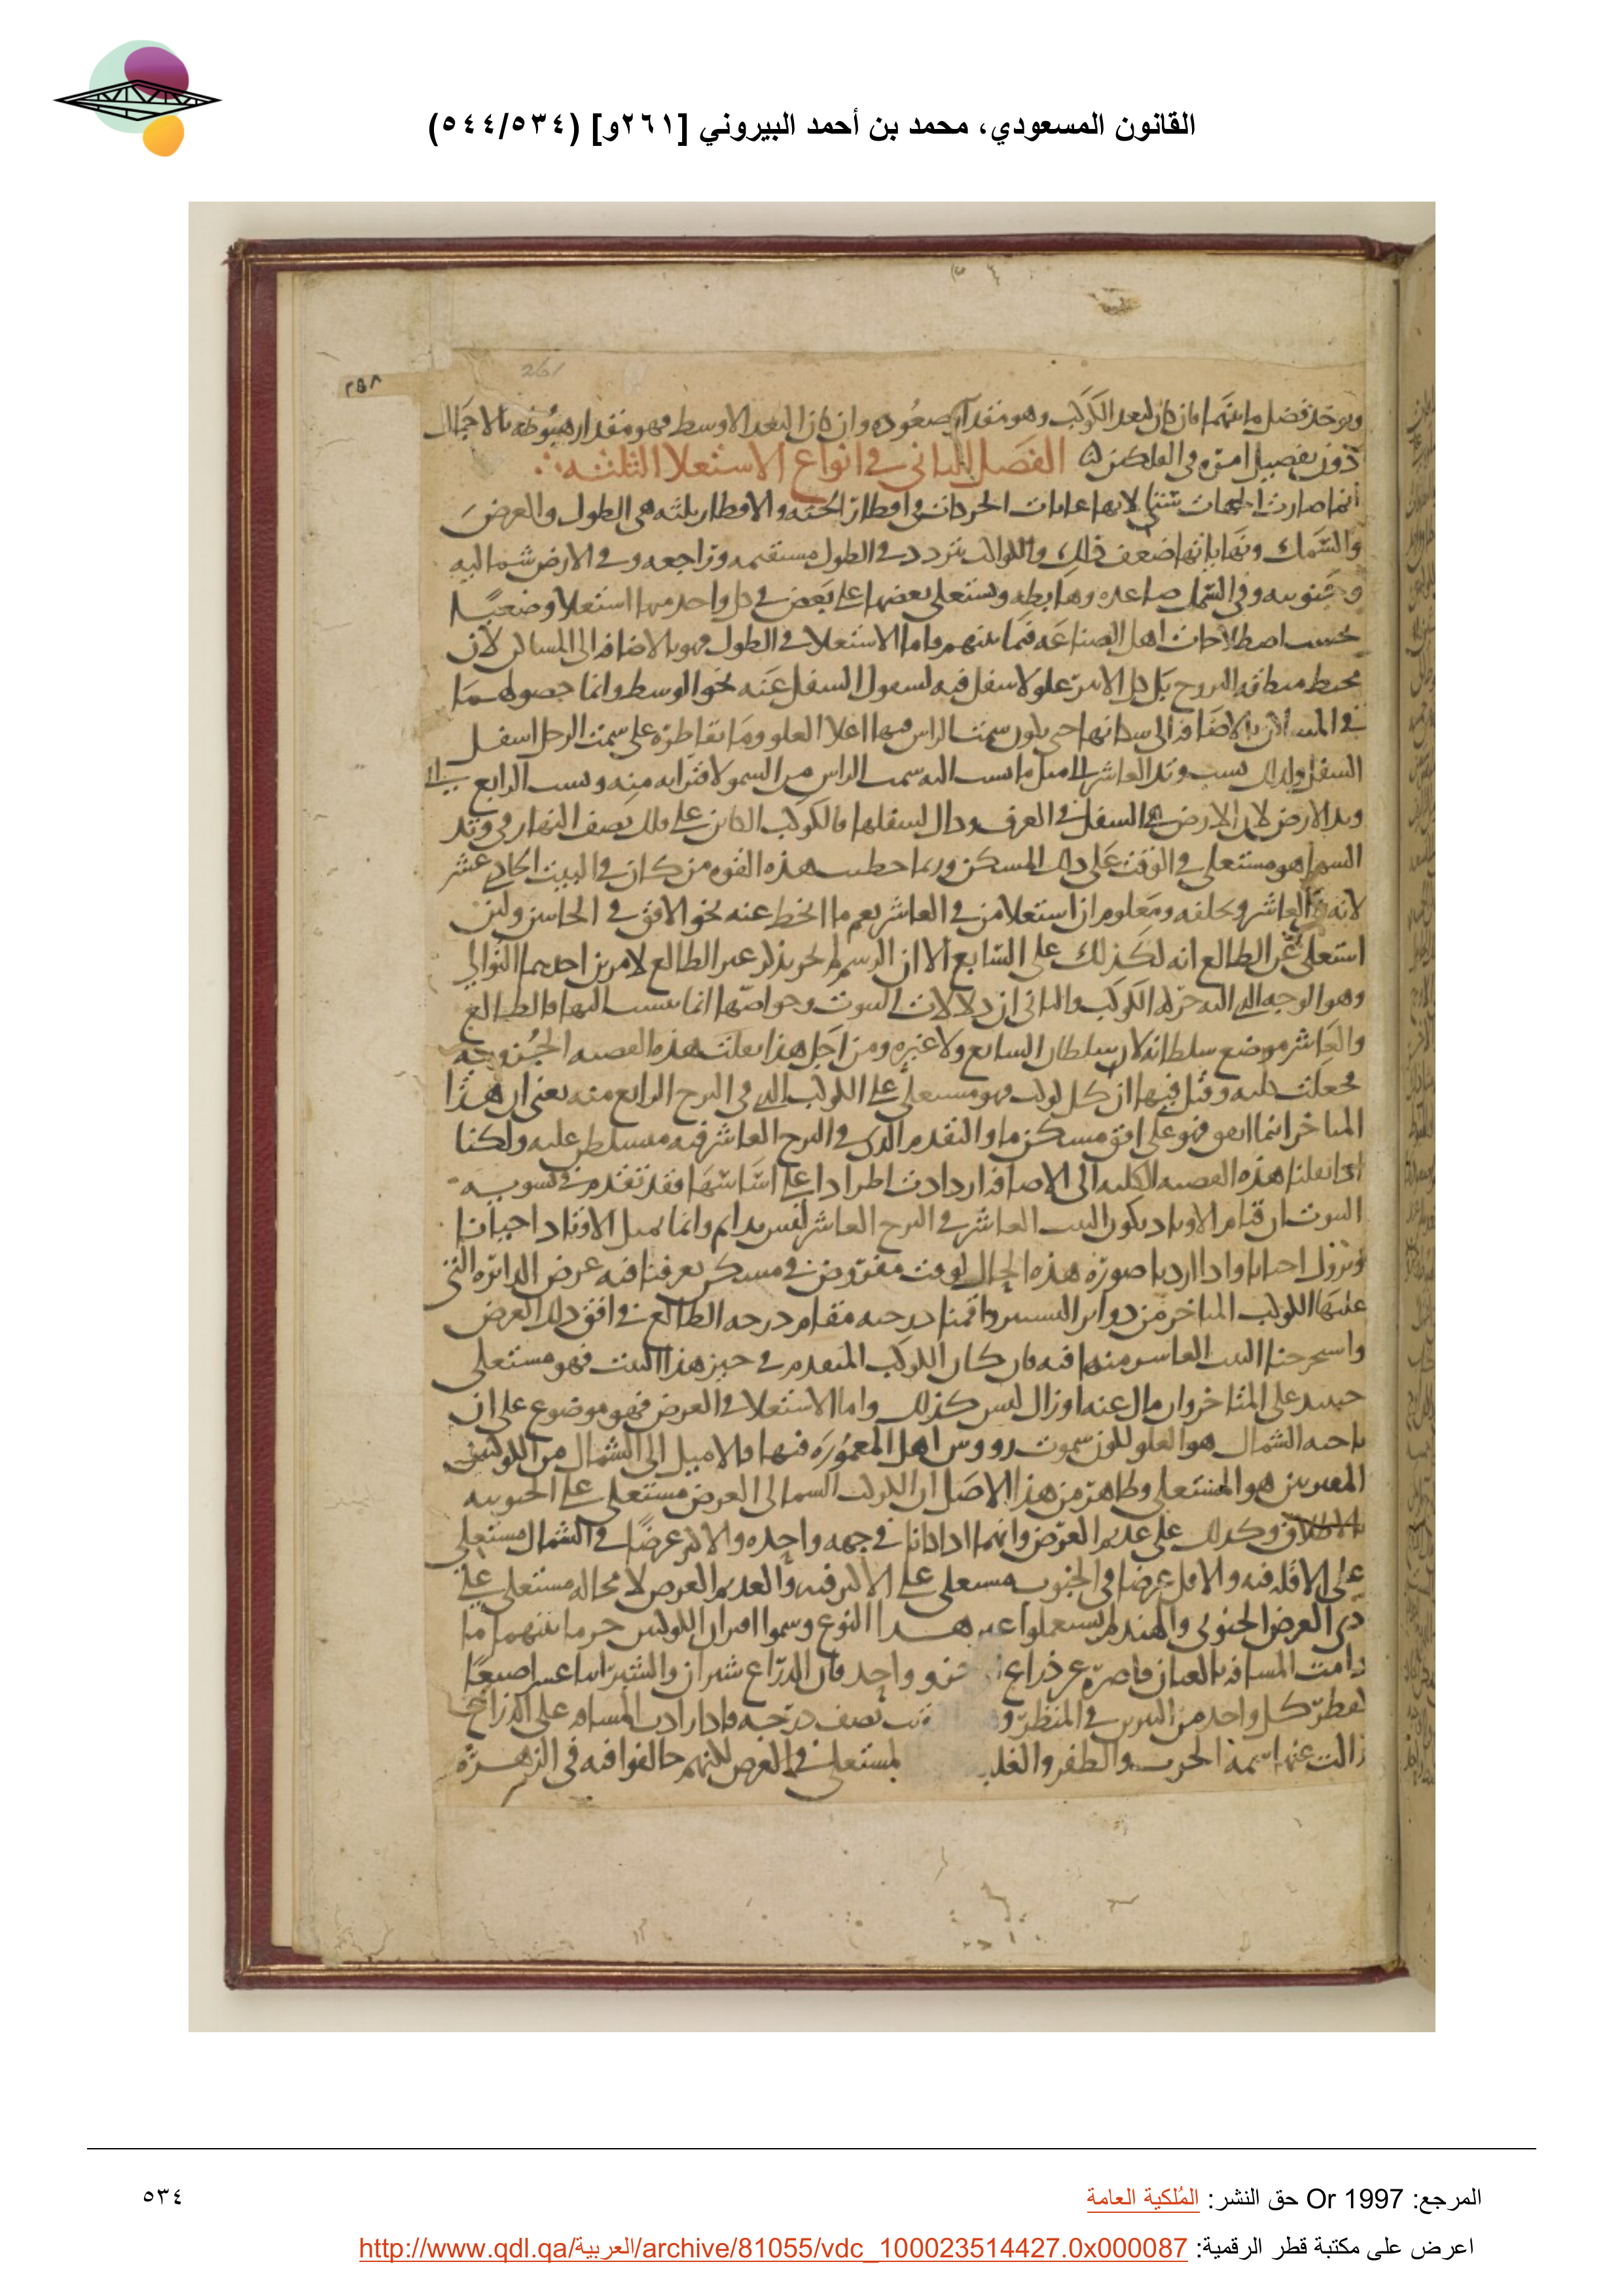 القانون المسعودي، محمد بن أحمد البيروني [٢٦١و] (٥٣٤/٥٤٤)
٢٥٨
261
ويوخذ فضل ما بينهما فان كان لبعد الكوكب وهو مقدار صعوده وان كان البعد الاوسط فهو مقدار هبوطه بالاجمال
دون تفصيل امره في الفلكين الفصل الثاني في انواع الاستعلا الثلثه
انما صارت الجهات ستا لانها غايات الحركات في اقطار الجثه والاقطار ثلثه هي الطول والعرض
والسمك ونهاياتها ضعف ذلك والكواكب تتردد في الطول مستقيمه وراجعه وفي الارض شماليه
وجنوبيه وفي السمك صاعده وهابطه ويستعلي بعضها على بعض في كل واحد منها استعلا وضعيا
بحسب اصطلاحات اهل الصناعه فيما بينهم فاما الاستعلا في الطول فهو بالاضافه الى المساكن لان
محيط منطقه البروج بل كل الاثير علو لا سفل فيه لسفول السفل عنه نحو الوسط وانما حصولهما
في المساكن بالاضافه الى سكانها حتى يكون سمت الراس فيها اعلا العلو وما يقاطره على سمت الرجل اسفل
السفل ولذلك نسب وتد العاشر الى مثل ما نسب اليه سمت الراس من السمو لاقترابه منه ونسب الرابع الى
وتد الارض لان الارض هي السفل في العرف فالكوكب الكائن على فلك نصف النهار في وتد
السما هو مستعلي في الوقت على ذلك المسكن وربما حطت هذه القوه من كان في البيت الحادي عشر
لانه العاشر ويخلفه ومعلوم ان استعلا من في العاشر يعم ما انحط عنه نحو الافق في الجانبين ولئن
استعلى عن الطالع انه لكذلك على السابع الا ان الرسم لم يجر بذكر غير الطالع لامرين احدهما التوالي
وهو الوجه الذي اليه حركه الكوكب والثاني ان دلالات البيوت وخواصها انما تنسب اليها فالطالع
والعاشر موضع سلطانه لا سلطان السابع ولا غيره ومن اجل هذا نقلت هذه القضيه الجزويه
فجعلت كليه وقيل فيها ان كل كوكب فهو مستعلي على الكوكب الذي في البرج الرابع منه يعنى ان هذا
المتاخر انما اتفق فهو على افق مسكن ما والمتقدم الذي في البرج العاشر فيه متسلط عليه ولكنا
اذا نقلنا هذه القضيه الكليه الى الاضافه ازدادت اطرادا على اساسها فقد تقدم في تسويه
البيوت ان قيام الاوتاد بكون البيت العاشر في البرج العاشر ليس بدائم وانما تميل الاوتاد احيانا
وتزول احيانا واذا اردنا صوره هذه الحال لوقت مفروض في مسكن يعرفنا فيه عرض الدائره التي
عليها الكوكب المتاخر من دوائر التسيير واقمنا درجته مقام درجه الطالع في افق ذلك العرض
واستخرجنا البيت العاشر منها فيه فان كان الكوكب المتقدم في حيز هذا البيت فهو مستعلي
حينئذ على المتاخر وان مال عنه او زال ليس كذلك واما الاستعلا في العرض فهو موضوع على ان
ناحيه الشمال هو العلو لكون سموت رووس اهل المعموره فيها فالاميل الى الشمال من الكوكبين
المقترنين هو المستعلي وظاهر من هذا الاصل ان الكوكب الشمالي العرض مستعلي على الجنوبيه
بالاطلاق وكذلك على عديم العرض وانهما اذا كانا في جهه واحده والاكثر عرضا في الشمال مستعلي
على الاقل فيه والاقل عرضا في الجنوب مستعلي على الاكثر فيه والعديم العرض لا محاله مستعلي على
ذي العرض الجنوبي والهند لم يستعملوا غير هذا النوع وسموا اقتران الكوكبين حربا بينهما ما
دامت المسافه بالعيان قاصره عن ذراع واحد فان الذراع شبران والشبر اثنا عشر اصبعا
لقطر كل واحد من النيرين في المنظر نصف درجه فاذا زادت المسافه على الذراع
زالت عنهما سمه الحرب والظفر والغلبه لمستعلي في العرض لكنهم خالفوا فيه في الزهره
المرجع: Or 1997 حق النشر: المُلكية العامة
٥٣٤
اعرض على مكتبة قطر الرقمية: http://www.qdl.qa/العربية/archive/81055/vdc_100023514427.0x000087